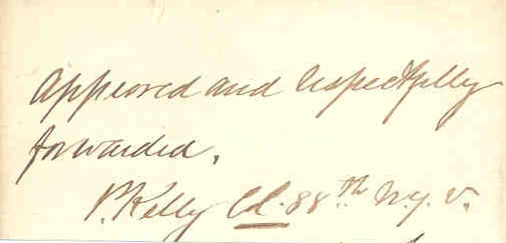 Approved and respectfully
forwarded.
P. Kelly Col. 88th N.Y.V.